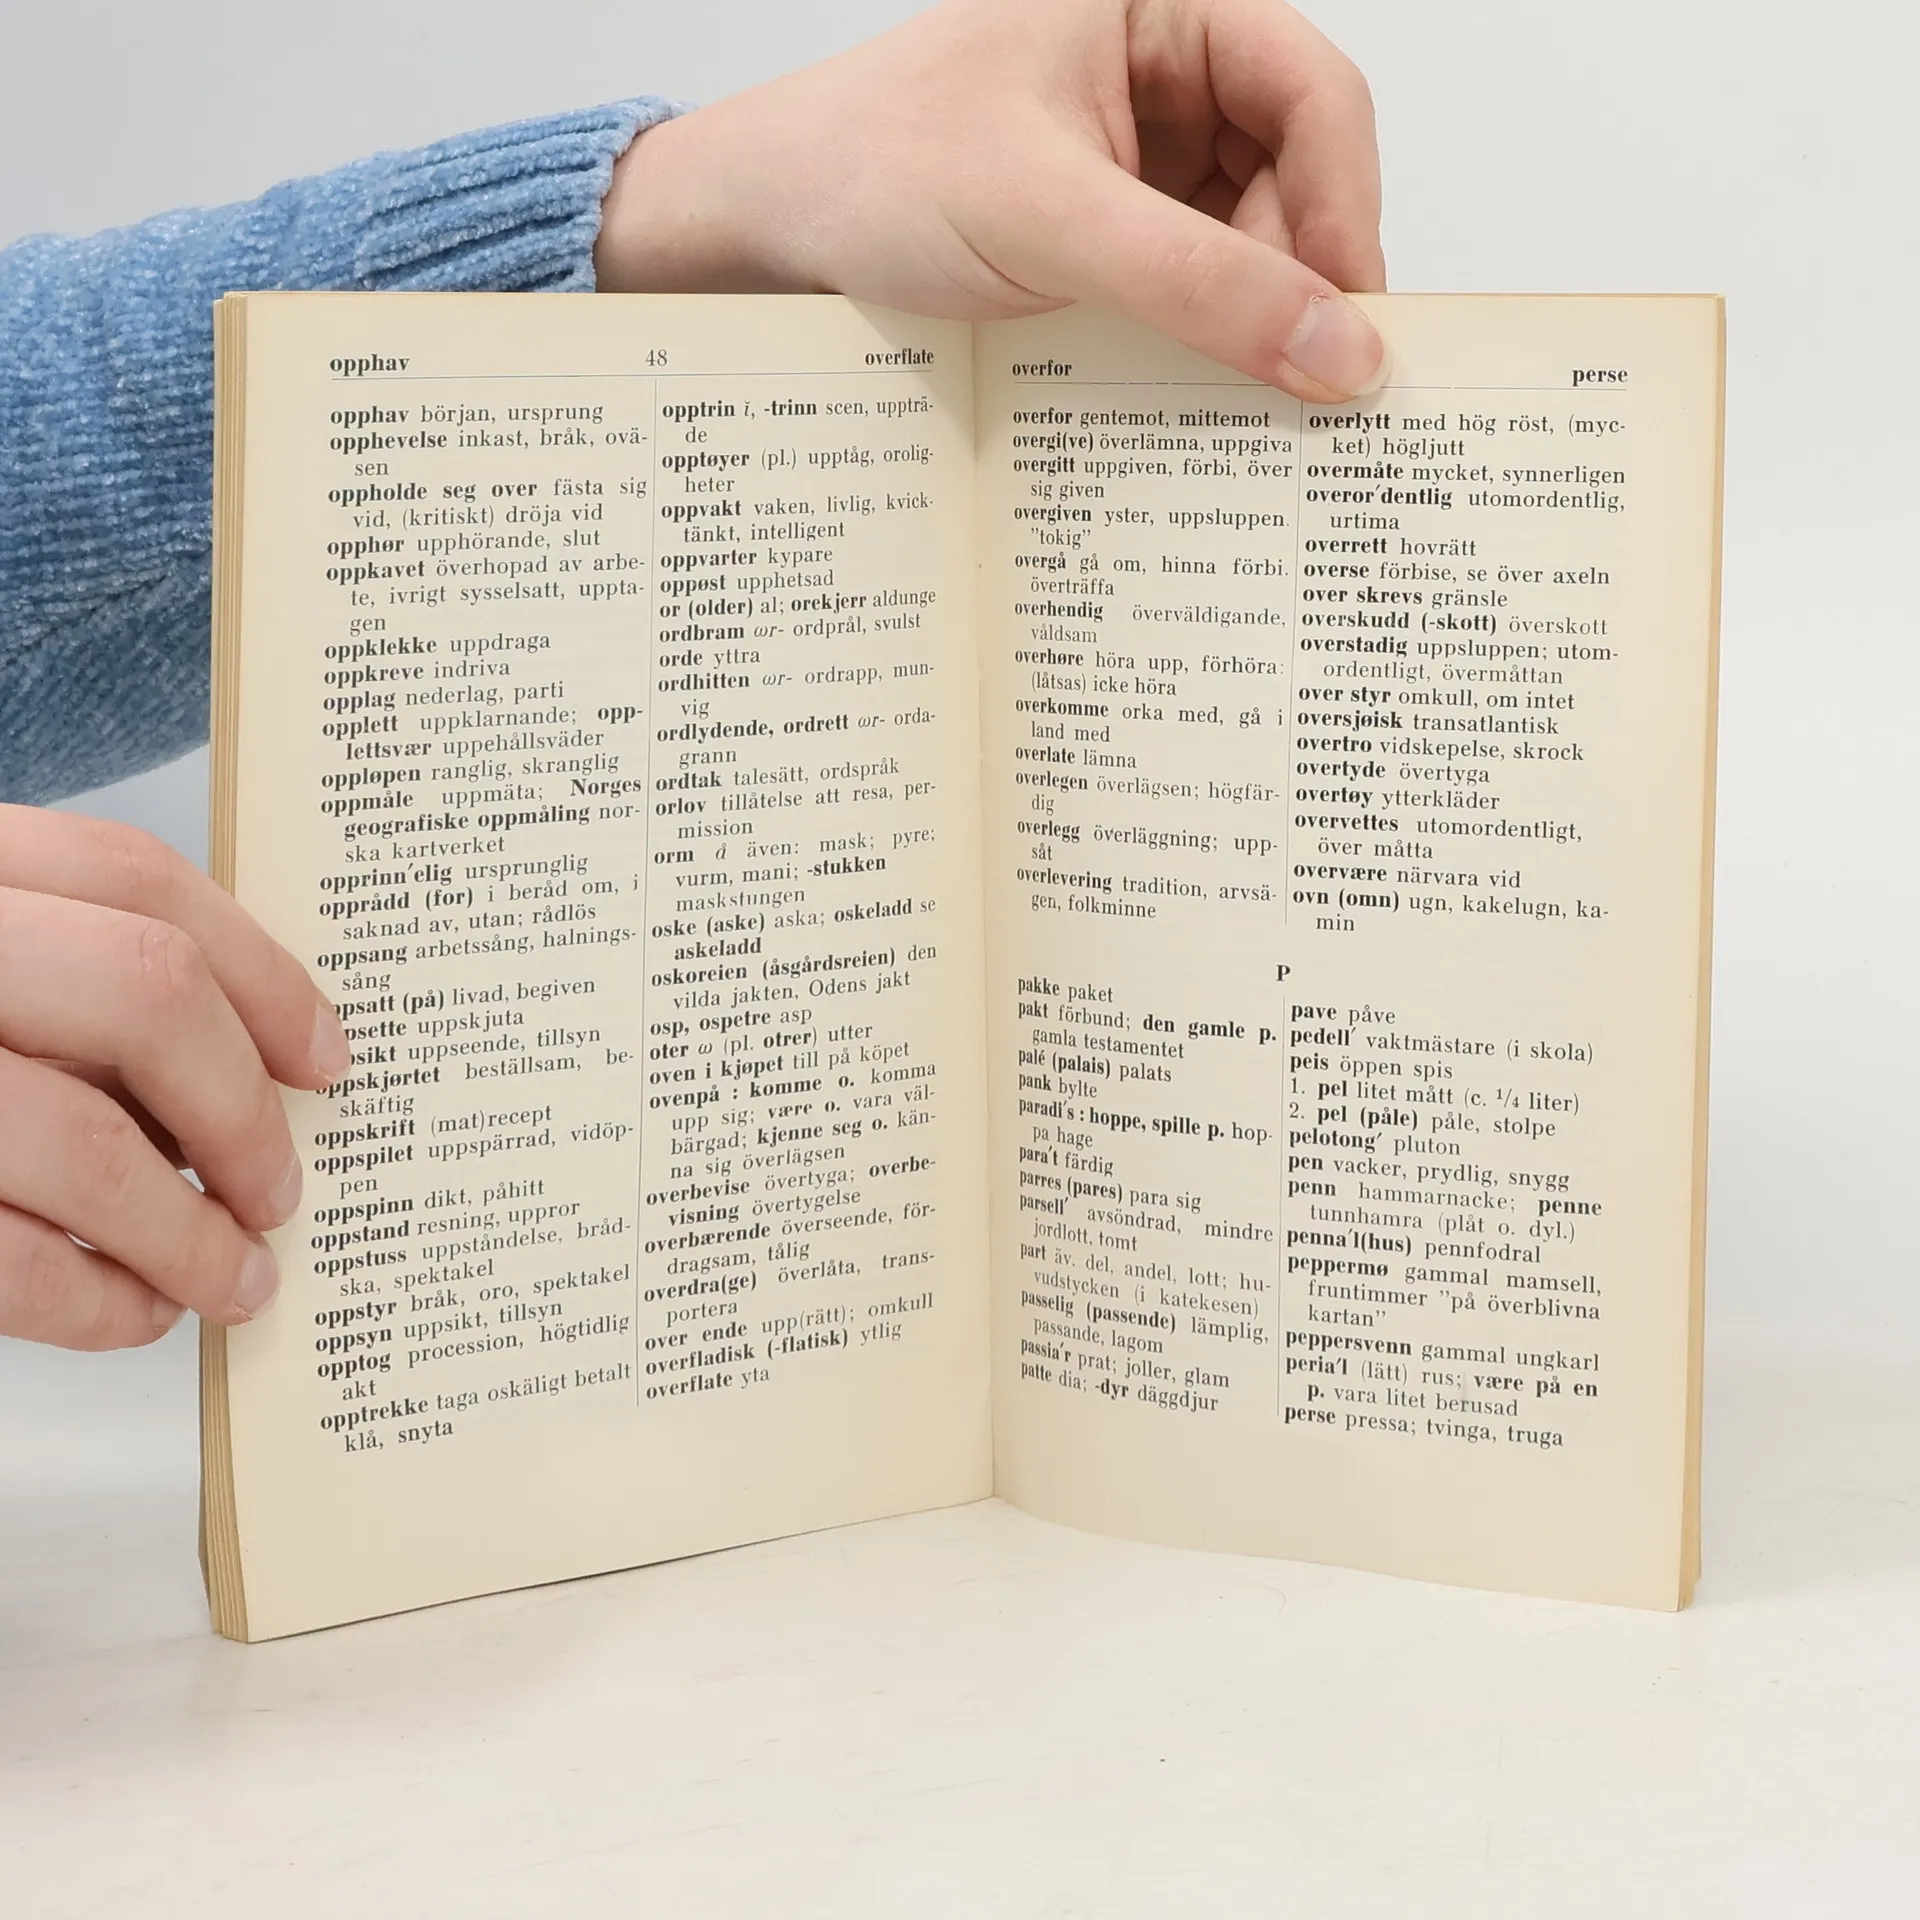 opphav 48 overflate
opphav början, ursprung
opphevelse inkast, bråk, ovä-
sen
oppholde seg over fästa sig
vid, (kritiskt) dröja vid
opphør upphörande, slut
oppkavet överhopad av arbe-
te, ivrigt sysselsatt, uppta-
gen
oppklekke uppdraga
oppkreve indriva
opplag nederlag, parti
opplett uppklarnande; opp-
lettsvær uppehållsväder
oppløpen ranglig, skranglig
oppmåle uppmäta; Norges
geografiske oppmåling nor-
ska kartverket
opprinn′elig ursprunglig
opprådd (for) i beråd om, i
saknad av, utan; rådlös
oppsang arbetssång, halnings-
sång
psatt (på) livad, begiven
sette uppskjuta
sikt uppseende, tillsyn
oppskjørtet beställsam, be-
skäftig
oppskrift (mat)recept
oppspilet uppspärrad, vidöp-
pen
oppspinn dikt, påhitt
oppstand resning, uppror
oppstuss uppståndelse, bråd-
ska, spektakel
oppstyr bråk, oro, spektakel
oppsyn uppsikt, tillsyn
opptog procession, högtidlig
akt
opptrekke taga oskäligt betalt
klå, snyta
opptrin ĭ, -trinn scen, uppträ-
de
opptøyer (pl.) upptåg, orolig-
heter
oppvakt vaken, livlig, kvick-
tänkt, intelligent
oppvarter kypare
oppøst upphetsad
or (older) al; orekjerr aldunge
ordbram ωr- ordprål, svulst
orde yttra
ordhitten ωr- ordrapp, mun-
vig
ordlydende, ordrett ωr- orda-
grann
ordtak talesätt, ordspråk
orlov tillåtelse att resa, per-
mission
orm å även: mask; pyre;
vurm, mani; -stukken
maskstungen
oske (aske) aska; oskeladd se
askeladd
oskoreien (åsgårdsreien) den
vilda jakten, Odens jakt
osp, ospetre asp
oter ω (pl. otrer) utter
oven i kjøpet till på köpet
ovenpå : komme o. komma
upp sig; være o. vara väl-
bärgad; kjenne seg o. kän-
na sig överlägsen
overbevise övertyga; overbe-
visning övertygelse
overbærende överseende, för-
dragsam, tålig
overdra(ge) överlåta, trans-
portera
over ende upp(rätt); omkull
overfladisk (-flatisk) ytlig
overflate yta
overfor perse
overfor gentemot, mittemot
overgi(ve) överlämna, uppgiva
overgitt uppgiven, förbi, över
sig given
overgiven yster, uppsluppen.
"tokig"
overgå gå om, hinna förbi.
överträffa
overhendig överväldigande,
våldsam
overhøre höra upp, förhöra:
(låtsas) icke höra
overkomme orka med, gå i
land med
overlate lämna
overlegen överlägsen; högfär-
dig
overlegg överläggning; upp-
såt
overlevering tradition, arvsä-
gen, folkminne
overlytt med hög röst, (myc-
ket) högljutt
overmåte mycket, synnerligen
overor′dentlig utomordentlig,
urtima
overrett hovrätt
overse förbise, se över axeln
over skrevs gränsle
overskudd (-skott) överskott
overstadig uppsluppen; utom-
ordentligt, övermåttan
over styr omkull, om intet
oversjøisk transatlantisk
overtro vidskepelse, skrock
overtyde övertyga
overtøy ytterkläder
overvettes utomordentligt,
över måtta
overvære närvara vid
ovn (omn) ugn, kakelugn, ka-
min
P
pakke paket
pakt förbund; den gamle p.
gamla testamentet
palé (palais) palats
pank bylte
paradi′s : hoppe, spille p. hop-
pa hage
para′t färdig
parres (pares) para sig
parsell′ avsöndrad, mindre
jordlott, tomt
part äv. del, andel, lott; hu-
vudstycken (i katekesen)
passelig (passende) lämplig,
passande, lagom
passia′r prat; joller, glam
patte dia; -dyr däggdjur
pave påve
pedell′ vaktmästare (i skola)
peis öppen spis
1. pel litet mått (c. 1/4 liter)
2. pel (påle) påle, stolpe
pelotong′ pluton
pen vacker, prydlig, snygg
penn hammarnacke; penne
tunnhamra (plåt o. dyl.)
penna′l(hus) pennfodral
peppermø gammal mamsell,
fruntimmer "på överblivna
kartan"
peppersvenn gammal ungkarl
peria′l (lätt) rus; være på en
p. vara litet berusad
perse pressa; tvinga, truga